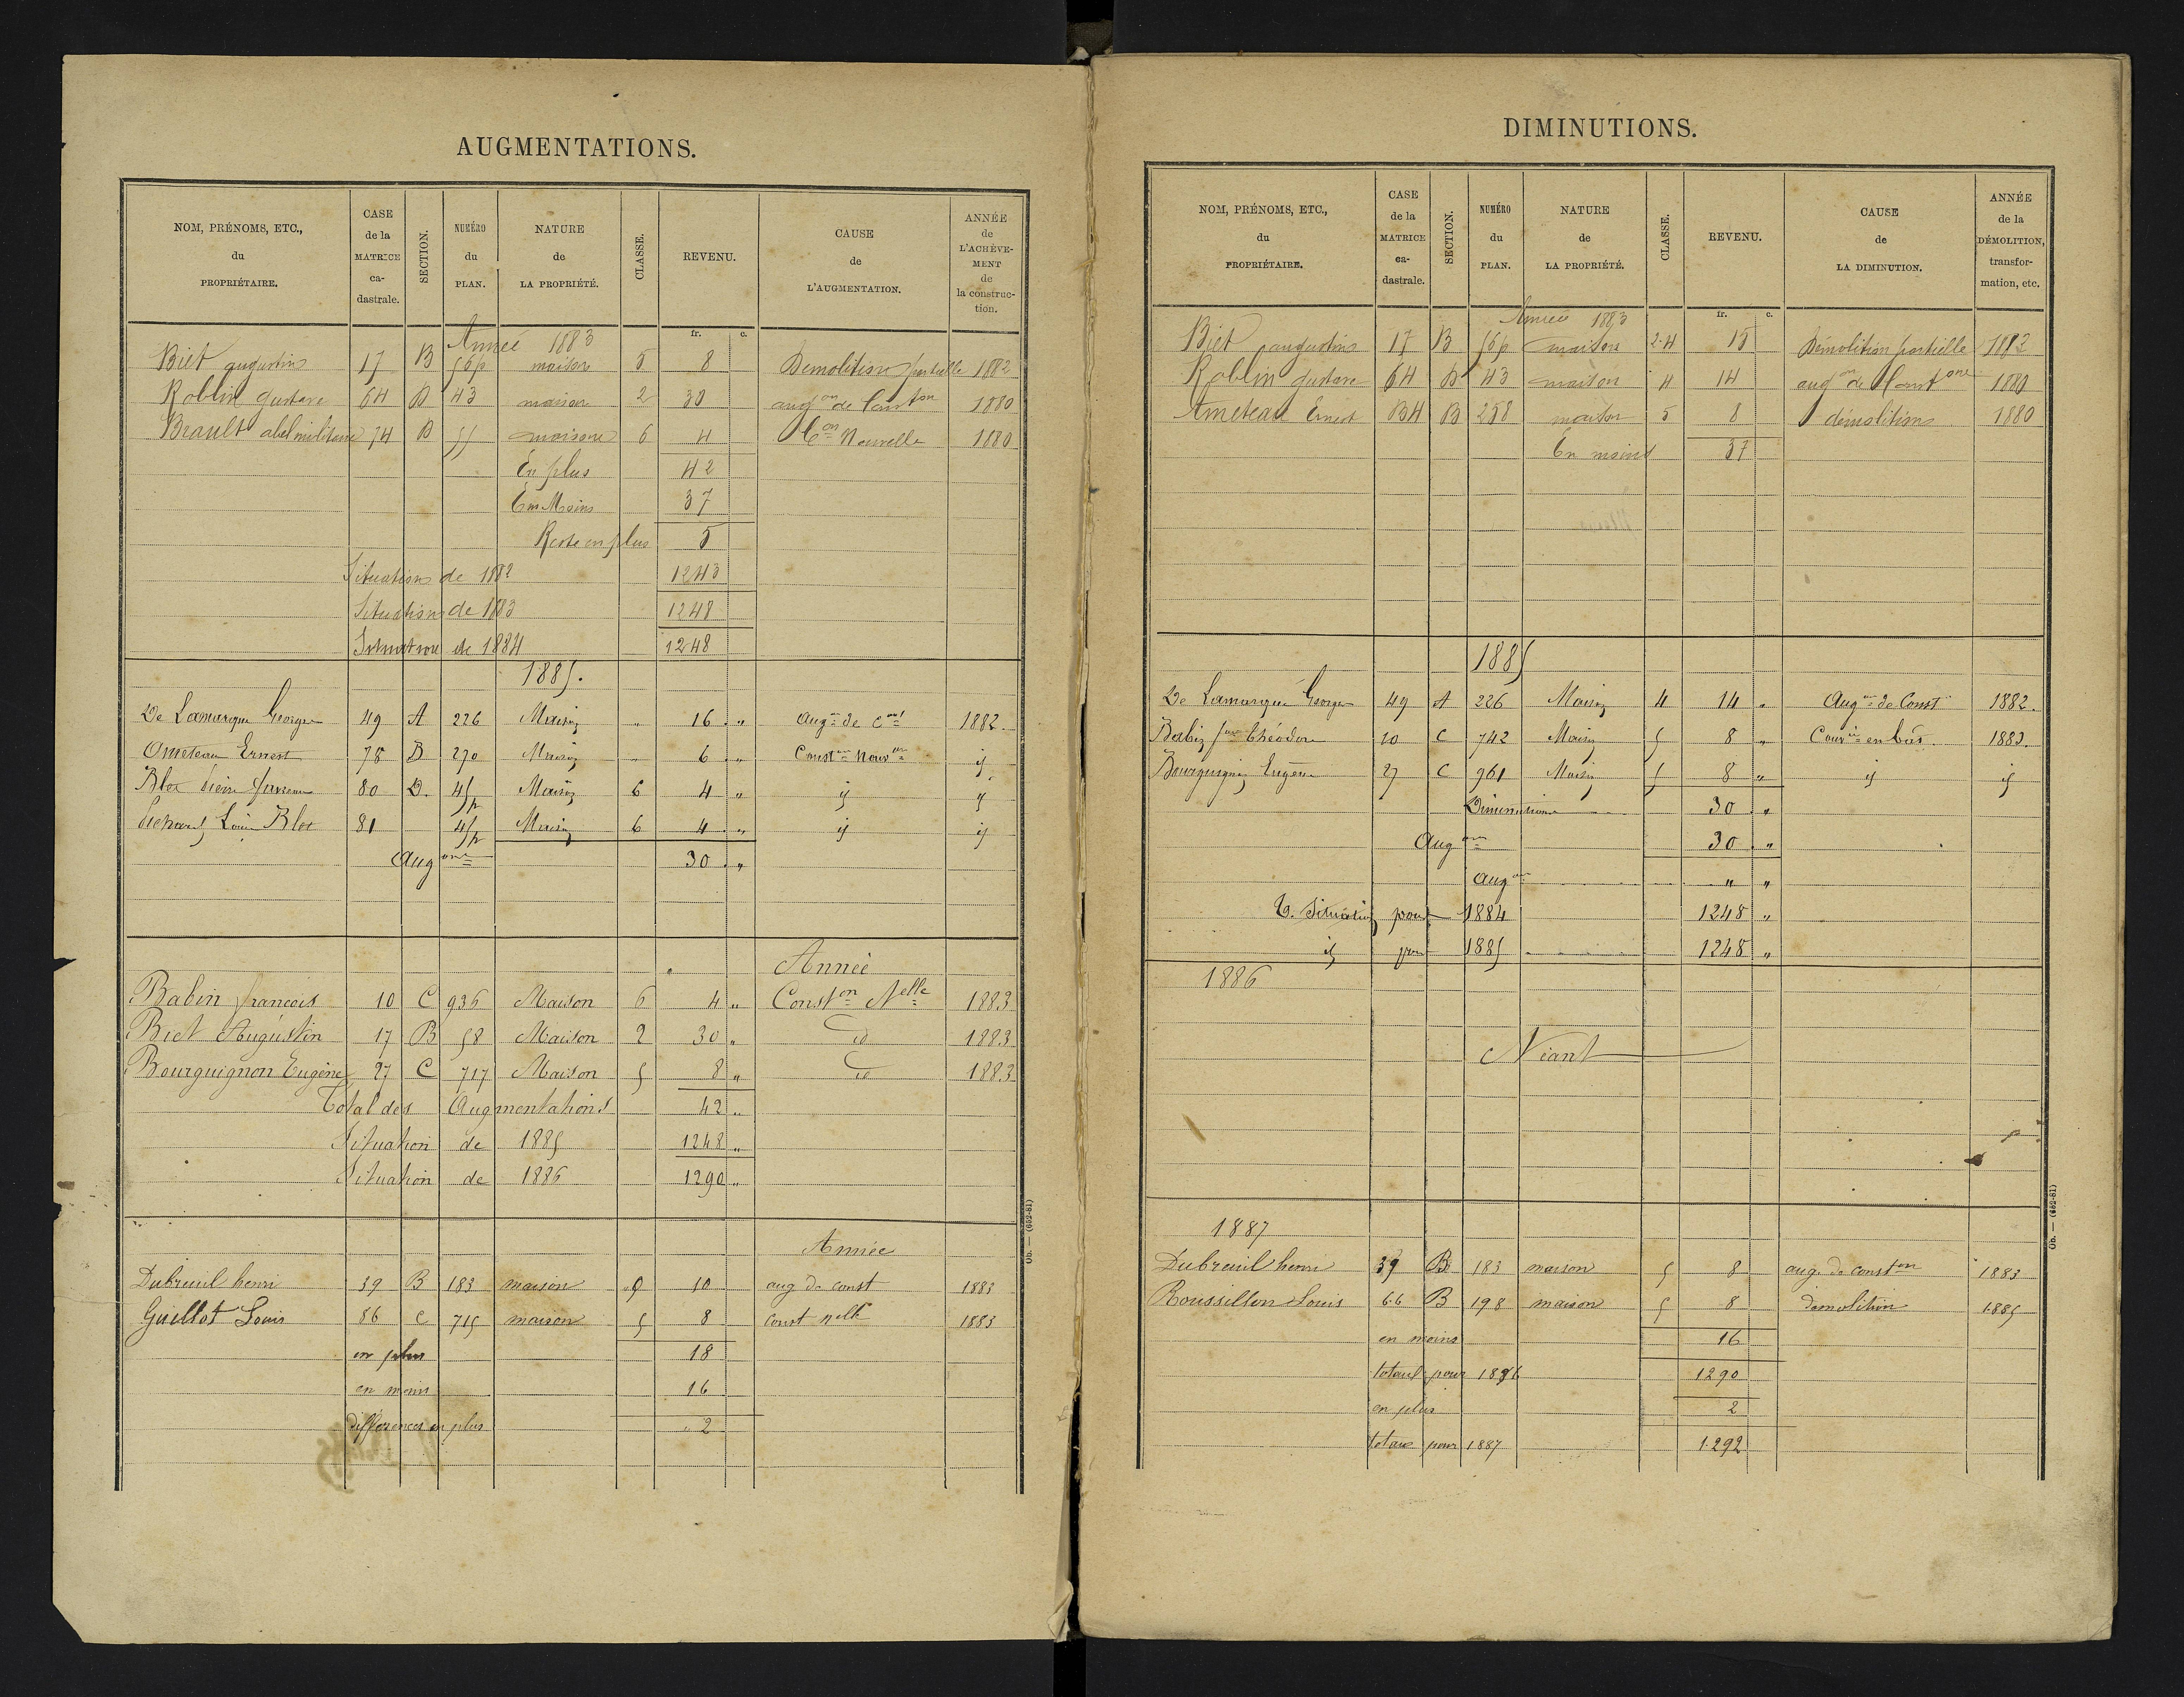 AUGMENTATIONS.
NOM, PRÉNOMS, ETC., du PROPRIÉTAIRE. CASE de la MATRICE ca-dastrale. SECTION. NUMÉRO du PLAN. NATURE de LA PROPRIÉTÉ. CLASSE. REVENU. CAUSE de L'AUGMENTATION. ANNÉE de L'ACHÈVE-MENT de la construc-tion.
fr. c.
Année 1883
Biet augustin 17 B 56p maison 5 8 Démolition partielle 1882
Roblin gustave 64 B 43 maison 2 30 augon de Conston 1880
Brault abel militaire 74 B 55 maison 6 4 Con Nouvelle 1880
En plus 42
En Moins 37
Reste en plus 5
Situation de 1882 1243
Situation de 1883 1248
Situation de 1884 1248
1885.
De Lamarque Georges 49 A 226 Maison " 16 " Augon de Const 1882.
Ometeau Ernest 78 B 270 Maison " 6 " Conston Nouv id
Blot Pierre 80 D. 45p Maison 6 4 " id id
Louis Blot 81 45p Maison 6 4 " id id
Augons 30 "
Année
Babin francois 10 C 936 Maison 6 4 " Conston Nelle 1883
Biet Augustin 17 B 58 Maison 2 30 " id 1883
Bourguignon Eugène 27 C 717 Maison 5 8 " id 1883
Total des Augmentations 42 "
Situation de 1885 1248 "
Situation de 1886 1290 "
Année
Dubreuil henri 39 B 183 maison 9 10 aug de const 1883
Guillot Louis 86 C 715 maison 5 8 const nelle 1883
en plus 18
en moins 16
différences en plus 2
Ob. — (652-81)
DIMINUTIONS.
NOM, PRÉNOMS, ETC., du PROPRIÉTAIRE. CASE de la MATRICE ca-dastrale. SECTION. NUMÉRO du PLAN. NATURE de LA PROPRIÉTÉ. CLASSE. REVENU. CAUSE de LA DIMINUTION. ANNÉE de la DÉMOLITION, transfor-mation, etc.
fr. c.
Année 1883
Biet augustin 17 B 56p maison 2.4 15 Démolition partielle 1882
Roblin gustave 64 B 43 maison 4 14 augon de Constone 1880
Ameteau Ernest B4 B 258 maison 5 8 démolition 1880
En moins 37
1885
De Lamarque Georges 49 A 226 Maison 4 14 " Augon de Const 1882.
Babin Théodore 10 C 742 Maison 5 8 " en bas. 1883.
Bourguignon Eugène 27 C 961 Maison 5 8 " id id
Diminutions 30 "
Augons 30 "
Augon " "
Situation pour 1884 1248 "
id pour 1885 1248 "
1886
Néant
1887
Dubreuil henri 39 B 183 maison 5 8 aug. de conston 1883
Roussillon Louis 66 B 198 maison 5 8 demolition 1885
en moins 16
totaul pour 1886 1290
en plus 2
totaux pour 1887 1292
Ob. — (652-81)